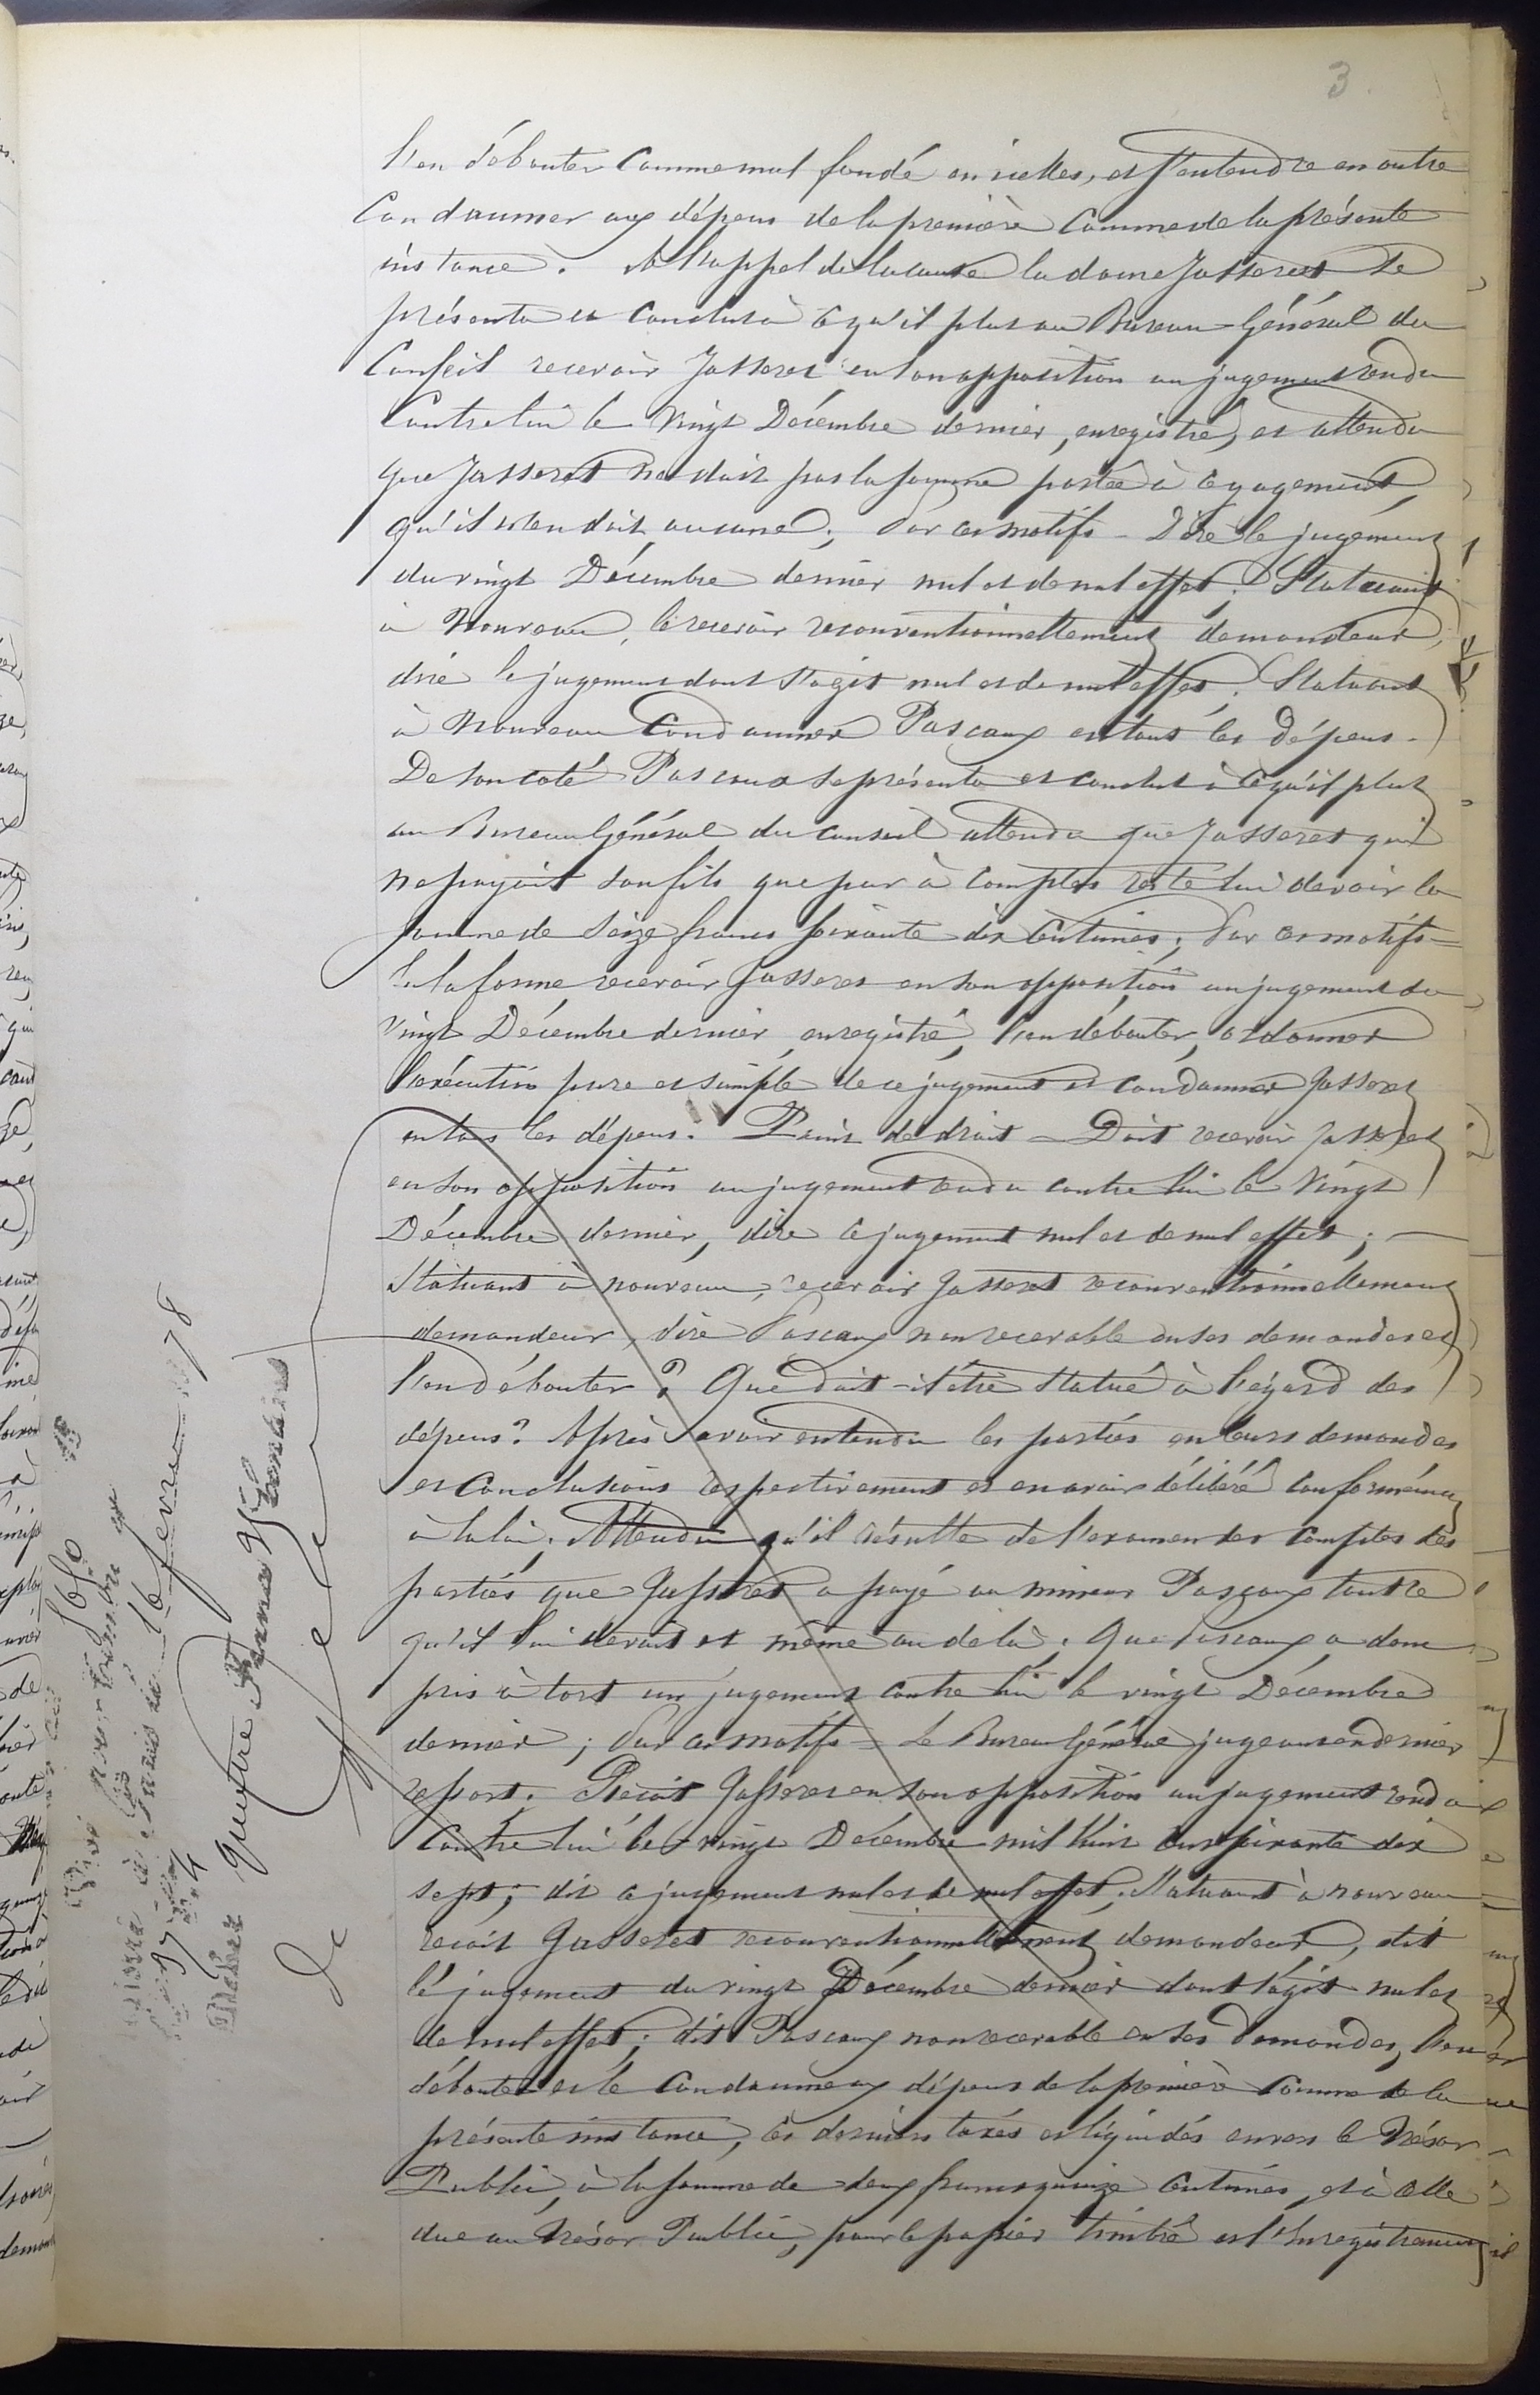 3
l'en débouter comme mal fondé en icelles, et s'entendre en outre
condamner aux dépens de la première comme de la présente
instance. A l'appel de la cause la dame Jasseret se
présenta et conclut à ce qu'il plut au Bureau Général du
Conseil recevoir Jasseret en son opposition au jugement rendu
contre lui le vingt Décembre dernier, enregistré, et attendu
que Jasseret ne doit pas la somme portée à ce jugement,
qu'il n'en doit aucune; Par ces motifs - Dire le jugement
du vingt Décembre dernier nul et de nul effet. Statuant
à nouveau, le recevoir reconventionnellement demandeur,
dire le jugement dont s'agit nul et de nul effet. Statuant
à nouveau Condamner Pascaux en tous les dépens.
De son coté Pascaux se présenta et conclut à ce qu'il plut
au Bureau Général du Conseil attendu que Jasseret qui
ne payait son fils que par à comptes reste lui devoir la
somme de seize francs soixante dix centimes; Par ces motifs =
En la forme recevoir Jasseret en son opposition au jugement du
vingt Décembre dernier, enregistré, l'en débouter, ordonner
l'exécution pure et simple de ce jugement et condamner Jasseret
en tous les dépens. Point de droit - Doit-on recevoir Jasseret
en son opposition au jugement rendu contre lui le vingt
Décembre dernier, dire ce jugement nul et de nul effet; —
Statuant à nouveau, recevoir Jasseret reconventionnellement
demandeur, dire Pascaux non recevable en ses demandes et
l'en débouter? Que doit-il être statué à l'égard des
dépens? Après avoir entendu les parties en leurs demandes
et conclusions respectivement et en avoir délibéré conformément
à la loi; Attendu qu'il résulte de l'examen des comptes des
parties que Jasseret a payé au mineur Pascaux tout ce
qu'il lui devait et même au delà; Que Pascaux a donc
pris à tort un jugement contre lui le vingt Décembre
dernier; Par ces motifs = Le Bureau Général jugeant en dernier
ressort. Reçoit Jasseret en son opposition au jugement rendu
contre lui le vingt Décembre mil huit cent soixante dix
sept; dit ce jugement nul et de nul effet; Statuant à nouveau
reçoit Jasseret reconventionnellement demandeur, dit
le jugement du vingt Décembre dernier dont s'agit nul et
de nul effet; dit Pascaux non recevable en ses demandes, l'en
déboute et le condamne aux dépens de la première comme de la
présente instance, ces derniers taxés et liquidés envers le Trésor
Public, à la somme de deux francs quinze centimes, et à celle
due au Trésor Public, pour le papier timbré et l'Enregistrement
16 fevrier 1878
quatre francs